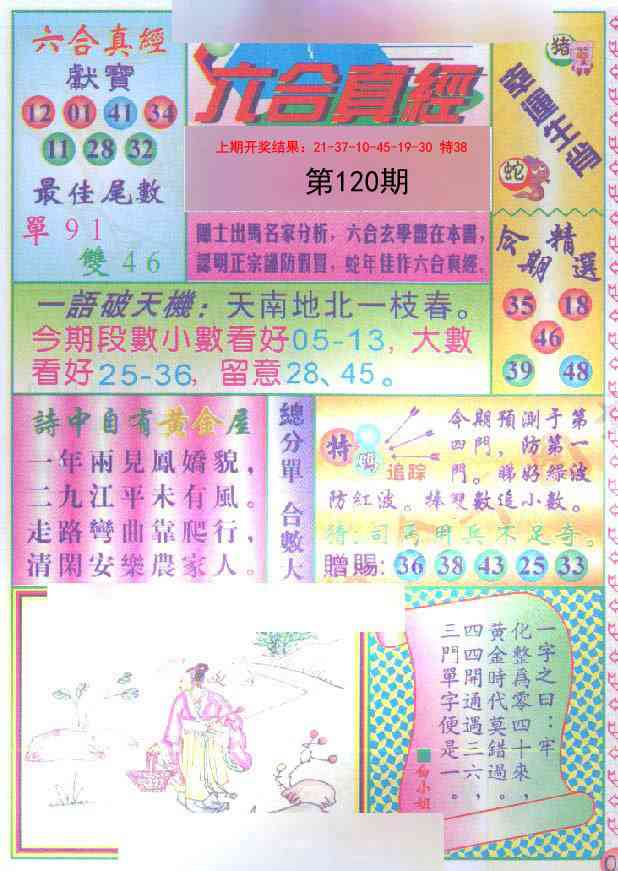 六合真經
獻寶
12 01 41 34
11 28 32
最佳尾數
單91
雙46
六合真經
上期开奖结果: 21-37-10-45-19-30 特38
第120期
師士出馬名家分析，六合玄學盡在本書，
認明正宗謹防假冒，蛇年佳作六合真經。
豬
蛇
今期精選
35 18
46
39 48
一語破天機：天南地北一枝春。
今期段數小數看好05-13，大數
看好25-36，留意28、45。
詩中自有黃金屋
一年兩見鳳嬌貌，
二九江平未有風。
走路彎曲靠爬行，
清閑安樂農家人。
總分單 合數大
特碼
追踪
今期預測于第
四門，防第一
門。睇好綠波
防紅波。捧雙數追小數。
猜:司馬用兵不足奇。
贈賜: 36 38 43 25 33
一字之曰：牢
化整為零四十來，
黃金時代莫錯過，
四四開通遇三六，
三門單字便是一。
白小姐